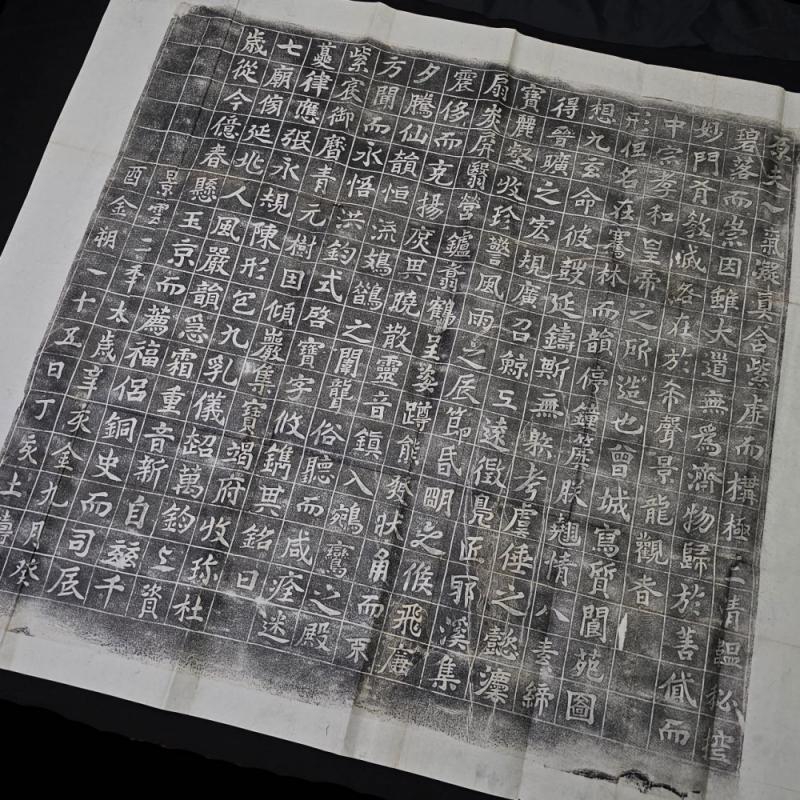 原夫一氣凝真含紫虛而構極三清韞秘控
碧落而崇因雖大道無為濟物歸於善貸而
妙門有教滅咎在於希聲景龍觀者
中宗孝和皇帝之所造也曾城寫質閬苑圖
形但名在騫林而韻停鐘虡朕翹情八素締
想九玄命彼鼓延鑄斯無射考虞倕之懿法
得晉曠之宏規廣召鯨工遠徵鳧匠耶溪集
寶麗壑收珍警風雨之辰節昏明之候飛廉
扇炭屏翳營鑪翥鶴呈姿蹲熊發狀角而克
震侈而克揚慶其曉散靈音鎮入鵷鸞之殿
夕騰仙韻恒流鳷鵲之闈聾俗聽而咸痊迷
方聞而永悟洪鈞式啓寶字攸鐫其銘曰
紫宸御曆青元樹因傾巖集寶竭府收珍杜
夔律應張永規陳形包九乳儀超萬鈞上資
七廟傍延兆人風嚴韻急霜重音新自茲千
歲從今億春懸玉京而薦福侶銅史而司辰
景雲二年太歲辛亥金九月癸
酉金朔一十五日丁亥土鑄